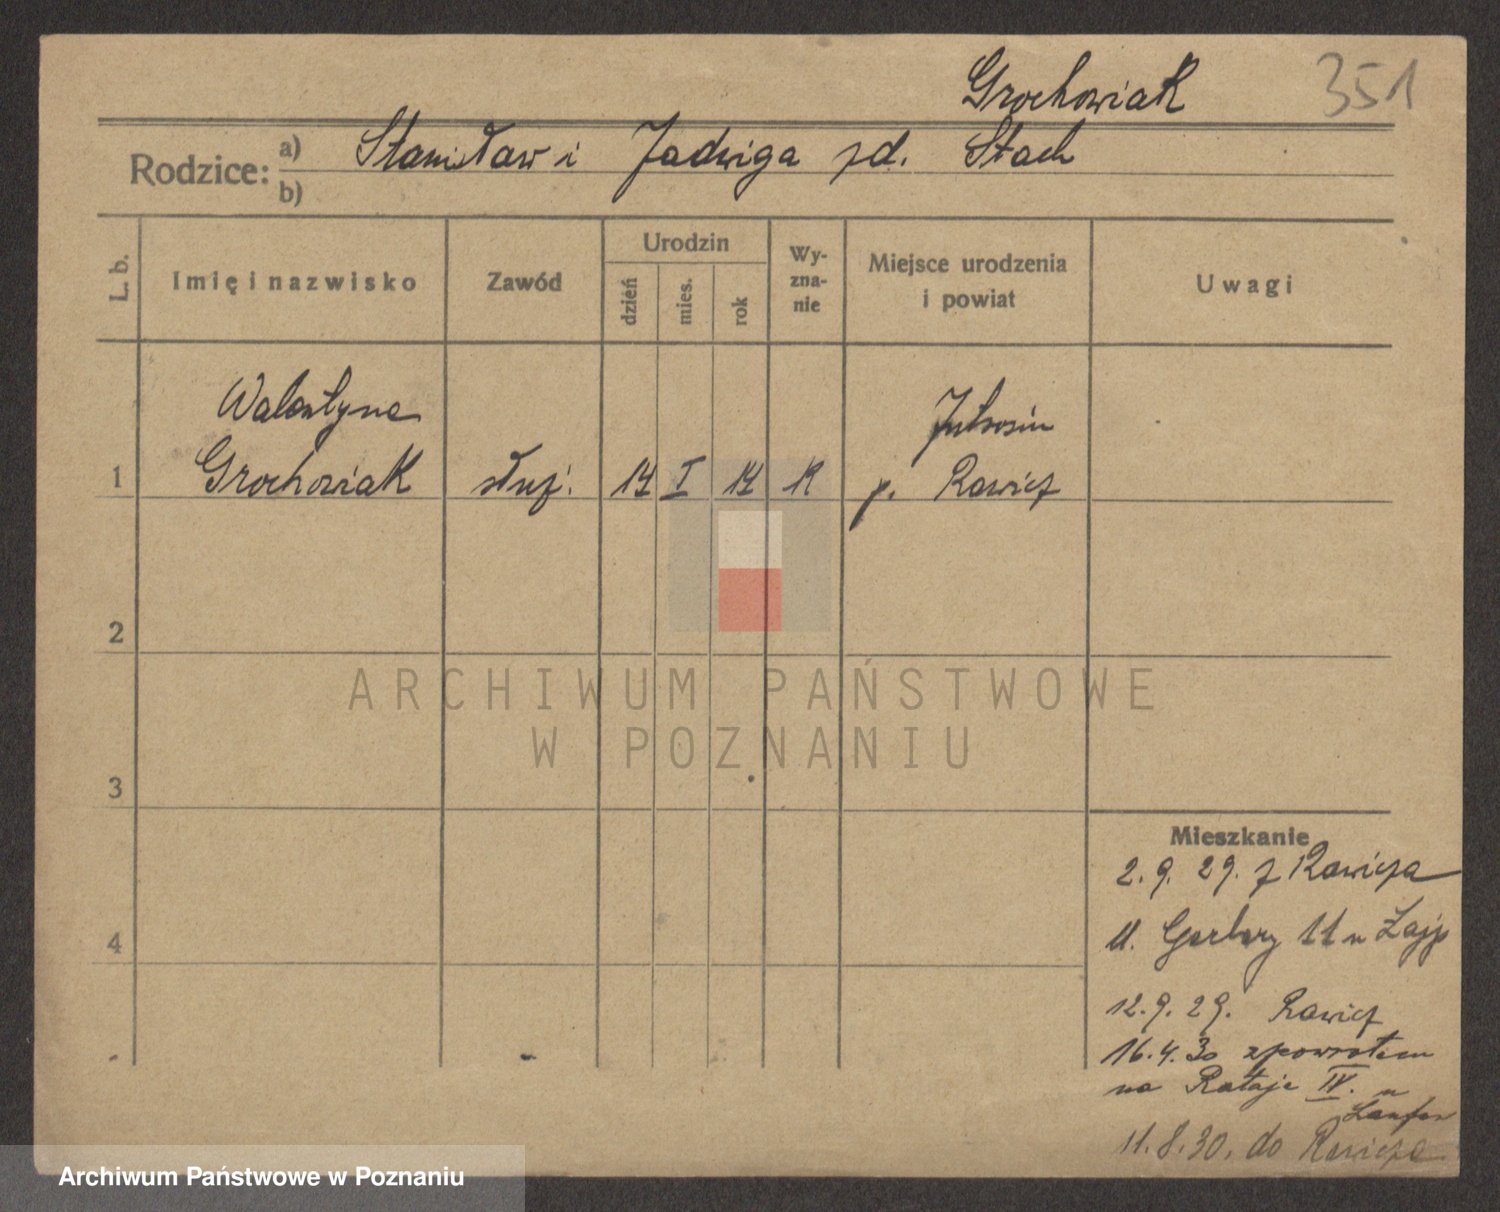 Grochowiak 351
Rodzice: a) Stanisław i Jadwiga zd. Stach
b)
L. b. Imię i nazwisko Zawód Urodzin dzień mies. rok Wy-zna-nie Miejsce urodzenia i powiat Uwagi
Walentyna Jutrosin
1 Grochowiak służ. 14 I 14 R p. Rawicz
2
ARCHIWUM PAŃSTWOWE
W POZNANIU
3
Mieszkanie
2. 9. 29. z Rawicza
4 ul. Garbary 11 u
12. 9. 29. Rawicz
16. 4. 30 zpowrotem
na Rataje IV. u
11. 8. 30. do Rawicza
Archiwum Państwowe w Poznaniu